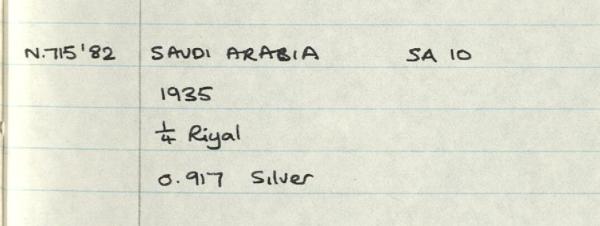 N.715'82 SAUDI ARABIA SA 10
1935
¼ Riyal
0.917 Silver